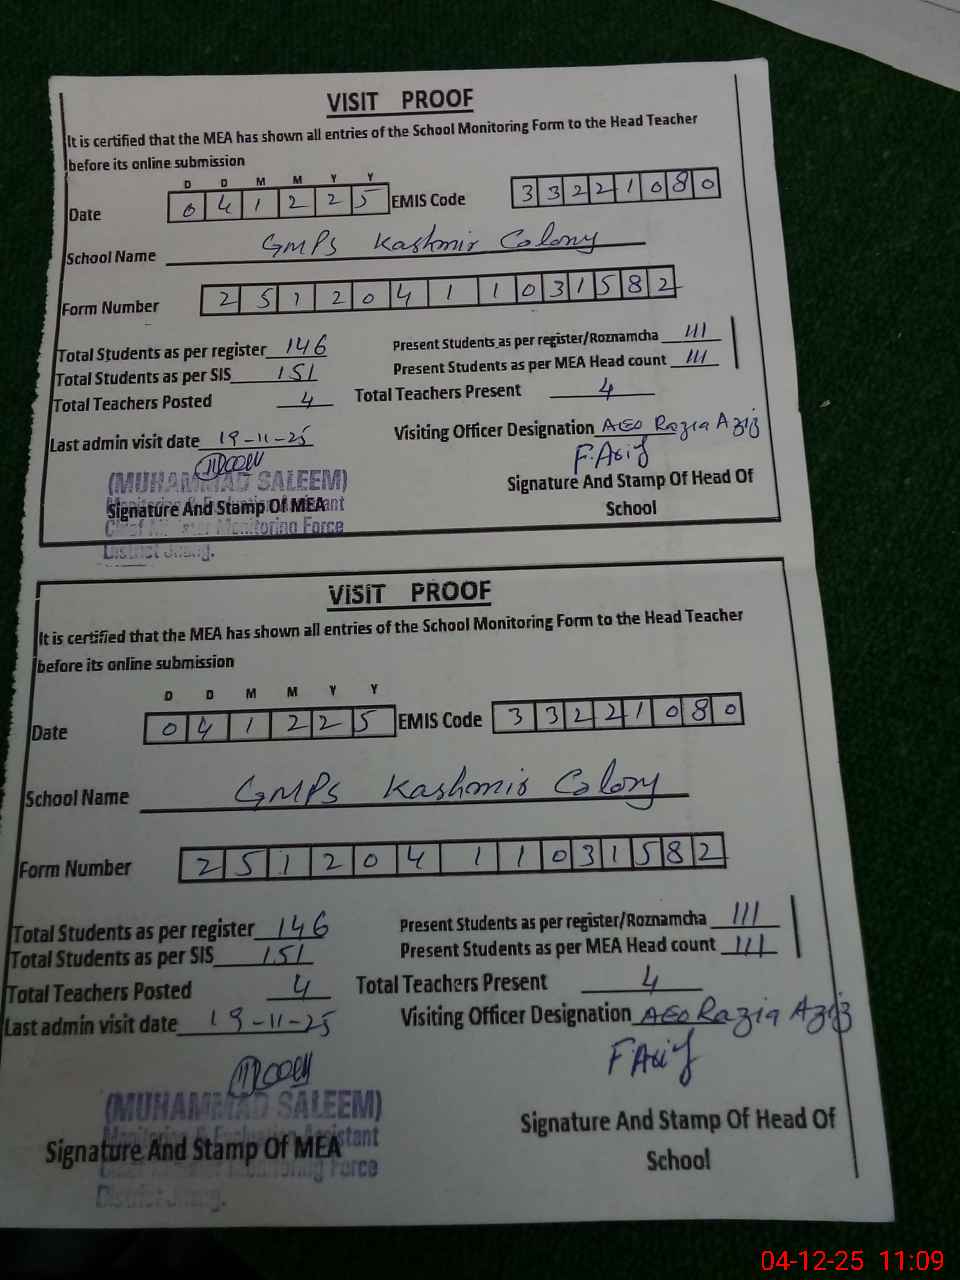 VISIT PROOF
It is certified that the MEA has shown all entries of the School Monitoring Form to the Head Teacher
before its online submission
D D M M Y Y
Date 0 4 1 2 2 5 EMIS Code 3 3 2 2 1 0 8 0
School Name GMPS Kashmir Colony
Form Number 2 5 1 2 0 4 1 1 0 3 1 5 8 2
Total Students as per register 146 Present Students as per register/Roznamcha 111
Total Students as per SIS 151 Present Students as per MEA Head count 111
Total Teachers Posted 4 Total Teachers Present 4
Last admin visit date 19-11-25 Visiting Officer Designation AEO Razia Aziz
F.Asif
(MUHAMMAD SALEEM)
Monitoring & Evaluation Assistant
Signature And Stamp Of MEA Signature And Stamp Of Head Of
School
Chief Minister Monitoring Force
District Jhang.
VISIT PROOF
It is certified that the MEA has shown all entries of the School Monitoring Form to the Head Teacher
before its online submission
D D M M Y Y
Date 0 4 1 2 2 5 EMIS Code 3 3 2 2 1 0 8 0
School Name GMPS Kashmir Colony
Form Number 2 5 1 2 0 4 1 1 0 3 1 5 8 2
Total Students as per register 146 Present Students as per register/Roznamcha 111
Total Students as per SIS 151 Present Students as per MEA Head count 111
Total Teachers Posted 4 Total Teachers Present 4
Last admin visit date 19-11-25 Visiting Officer Designation AEO Razia Aziz
F Asif
(MUHAMMAD SALEEM)
Monitoring & Evaluation Assistant
Signature And Stamp Of MEA Signature And Stamp Of Head Of
School
Chief Minister Monitoring Force
District Jhang.
04-12-25 11:09